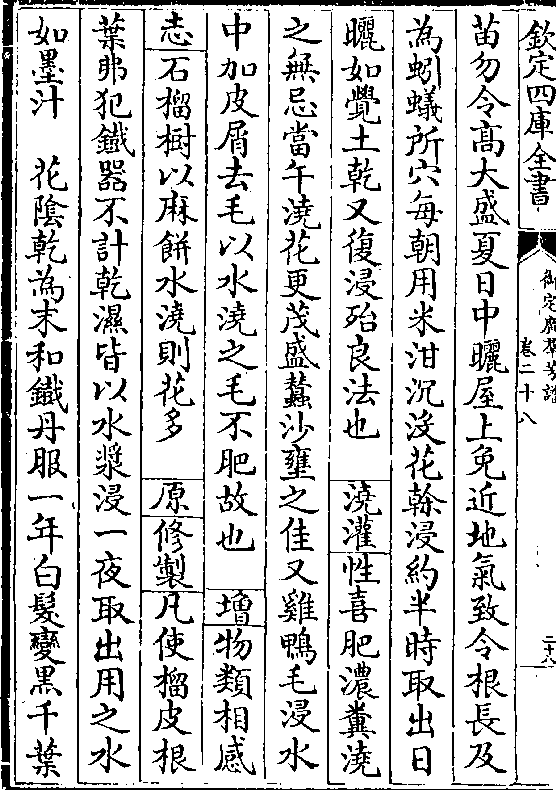 欽定四庫全書
御定廣羣芳譜
卷二十八
二十八
苗勿令高大盛夏日中曬屋上免近地氣致令根長及
為蚓蟻所穴每朝用米泔沉沒花斡浸約半時取出日
曬如覺土乾又復浸殆良法也 澆灌性喜肥濃糞澆
之無忌當午澆花更茂盛蠶沙壅之佳又雞鴨毛浸水
中加皮屑去毛以水澆之毛不肥故也 增物類相感
志石榴樹以麻餅水澆則花多 原修製凡使榴皮根
葉弗犯鐵器不計乾濕皆以水漿浸一夜取出用之水
如墨汁 花陰乾為末和鐵丹服一年白髮變黑千葉